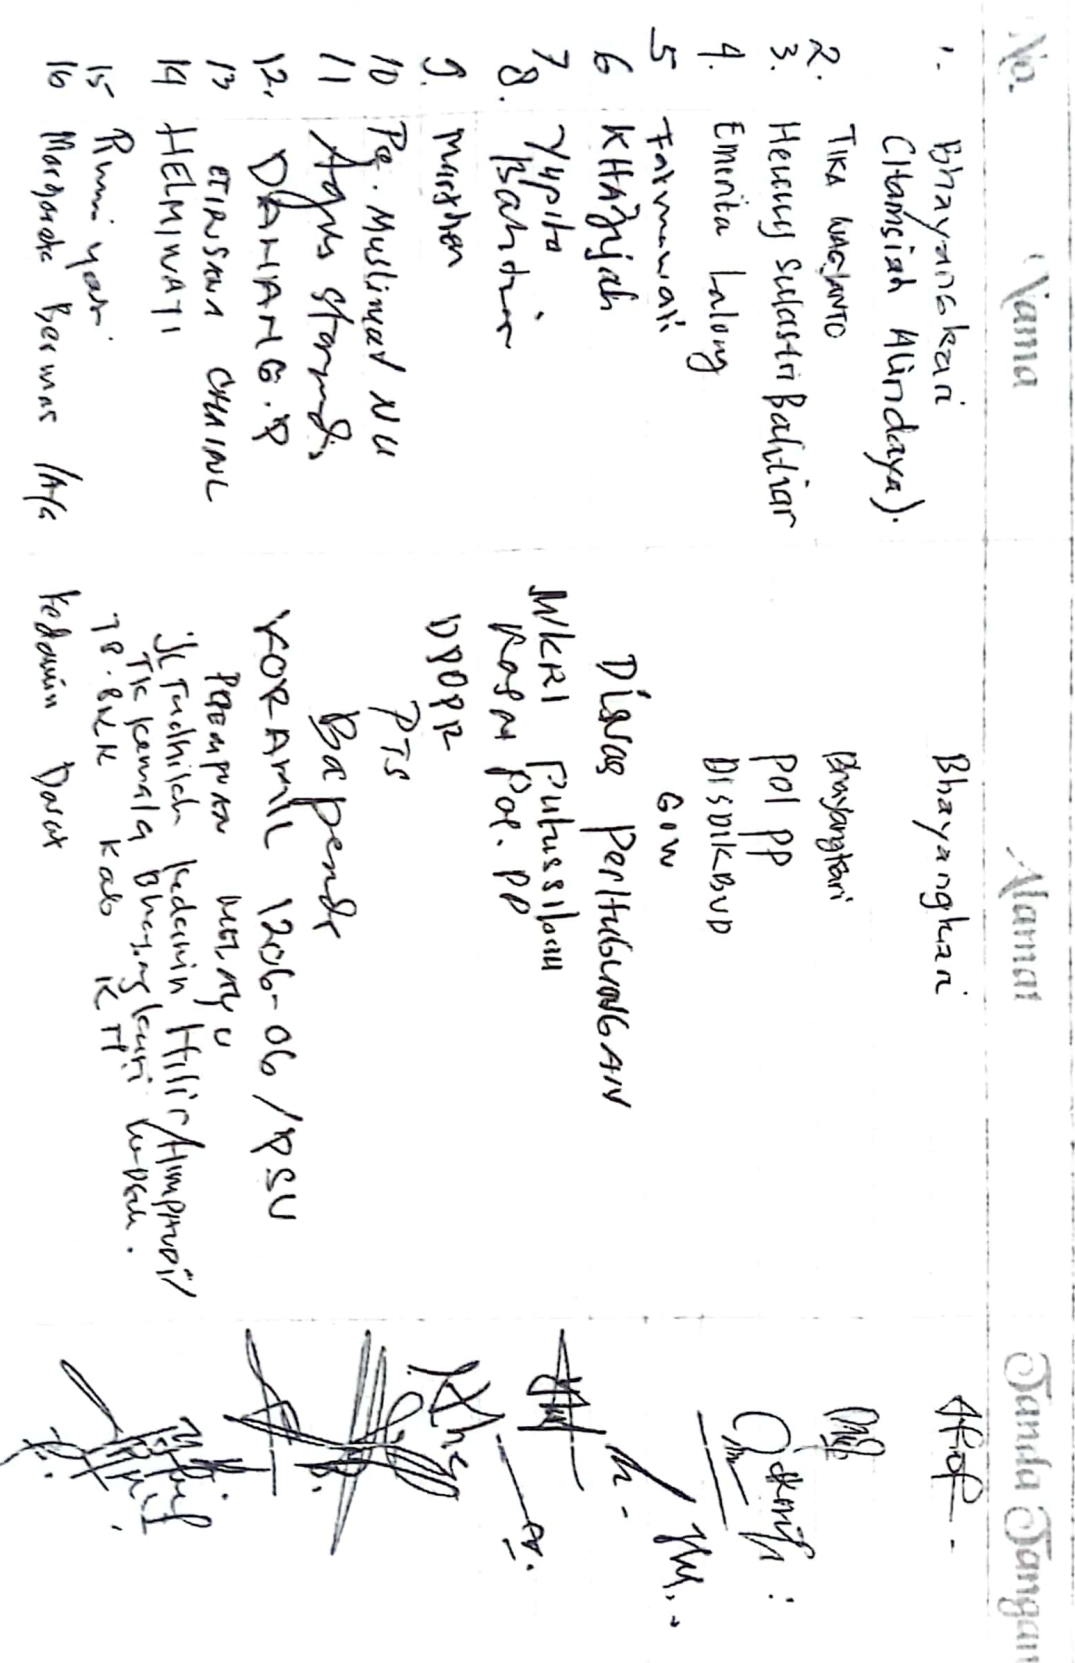 No. Nama Alamat Tanda Tangan
1. Bhayangkari Bhayangkari
(Hamsiah Alindaya).
2. TIKA WAGIANTO Bhayangkari
3. Henny Sulastri Bahtiar Pol PP
4. Emerita Lalong DISDIKBUD
5 Fatmawati GOW
6 KHAZijah Dinas PerHubUNGAN
7 Yupita WKRI Putussibau
8. Bahtiar Kasat Pol. PP
9. Marthen DPOPR
10 Pc. Muslimat NU PTS
11 Agus Starmudi Bapenda
12. DANIANG.P KORAMIL 1206-06/PSU
13 ETIRUSANA PEREMPUAN MELAYU
14 HELMIWATI Jl Fadhilah Kedamin Hilir/HIMPAUDI/
TK Kemala Bhayangkari
15 Rumiyati TP.PKK Kab
16 Margareta Bermas /A/G Kedamin Darat